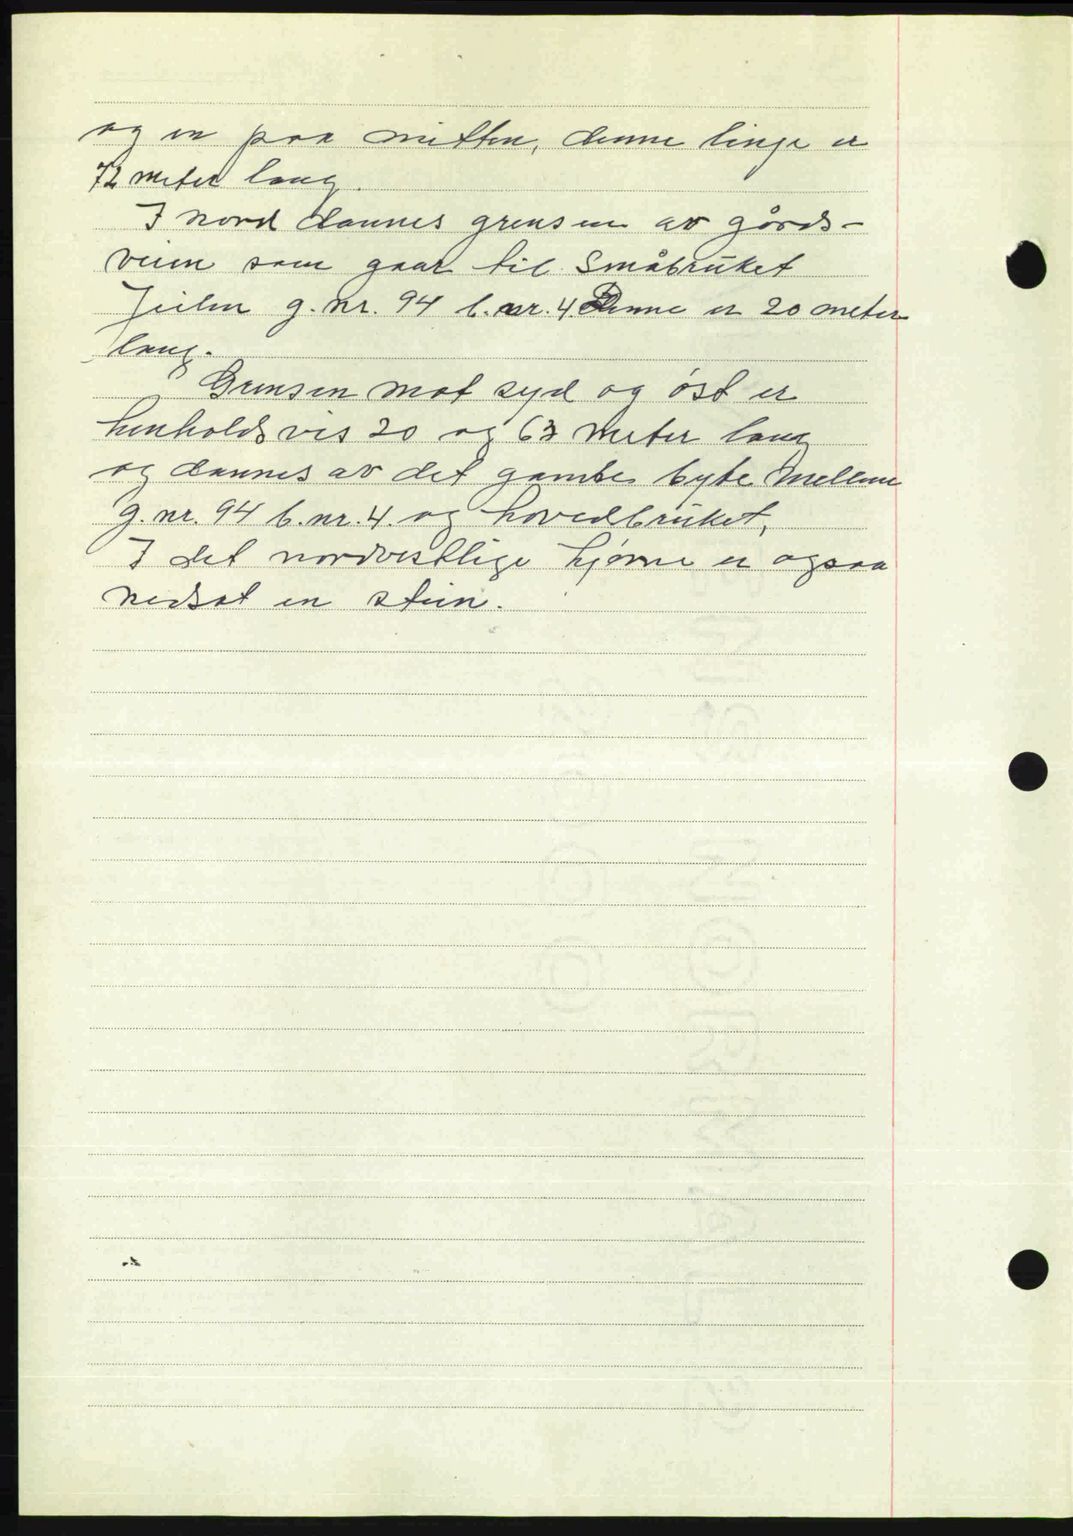 og en paa mitten, denne linje er
72 meter lang.
I nord dannes grensen av gårds-
veien som gaar til Småbruket
g. nr. 94 b. nr. 4 Denne er 20 meter
lang.
Grensen mot syd og öst er
henholdsvis 20 og 63 meter lang
og dannes av det gamle byte mellem
g. nr. 94 b. nr. 4. og hovedbruket,
I det nordvestlige hjørne er ogsaa
nedsat en stein.